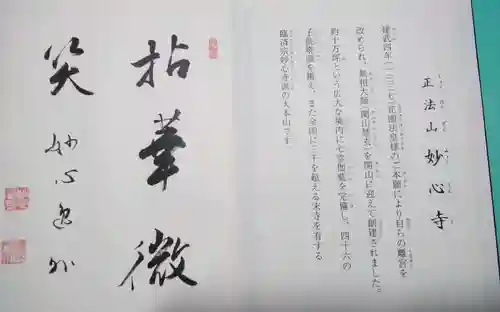 正法山妙心寺
しょうぼうざんみょうしんじ
建武四年(一三三七)花園法皇様のご本願により自らの離宮を
改められ、無相大師(関山慧玄)を開山に迎えて創建されました。
約十万坪という広大な境内に七堂伽藍を完備し、四十六の
子院塔頭を擁え、また全国に三千を超える末寺を有する
臨済宗妙心寺派の大本山です。
拈華微
笑
妙心